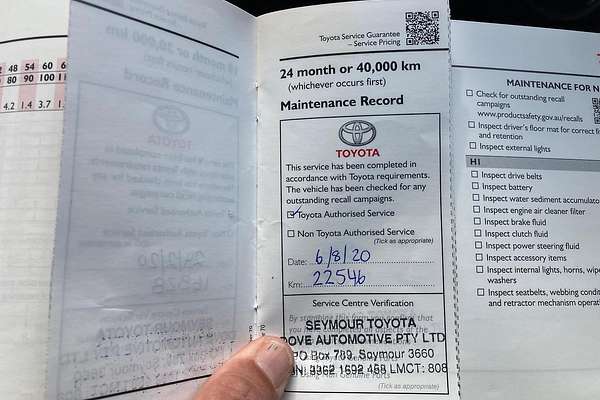 48 54 60 66
80 90 100 11
4.2 1.4 3.7 1.
18 month or 30,000 km
Maintenance Record
Toyota Service Guarantee
– Service Pricing
24 month or 40,000 km
(whichever occurs first)
Maintenance Record
TOYOTA
This service has been completed in
accordance with Toyota requirements.
The vehicle has been checked for any
outstanding recall campaigns.
Toyota Authorised Service
Non Toyota Authorised Service
(Tick as appropriate)
Date: 6/8/20
Km: 22546
Service Centre Verification
By stamping this form you confirm that
SEYMOUR TOYOTA
OVE AUTOMOTIVE PTY LTD
PO Box 789, Seymour 3660
N: 3362 1692 458 LMCT: 808
Using Non Genuine Parts
(Tick as appropriate)
MAINTENANCE FOR N
Check for outstanding recall
campaigns
www.productsafety.gov.au/recalls
Inspect driver's floor mat for correct fi
and retention
Inspect external lights
H1
Inspect drive belts
Inspect battery
Inspect water sediment accumulato
Inspect engine air cleaner filter
Inspect brake fluid
Inspect clutch fluid
Inspect power steering fluid
Inspect accessory items
Inspect internal lights, horns, wipe
washers
Inspect seatbelts, webbing condit
and retractor mechanism operat